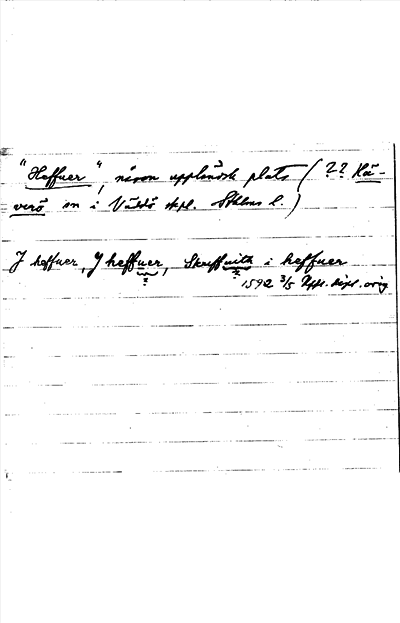 "Heffuer", någon uppländsk plats (?? Hä-
verö sn i Väddö skpl. Sthlms l.)
J heffuer, J heffuer, Skeffuith i heffuer
1592 3/5 Uppl. dipl. orig